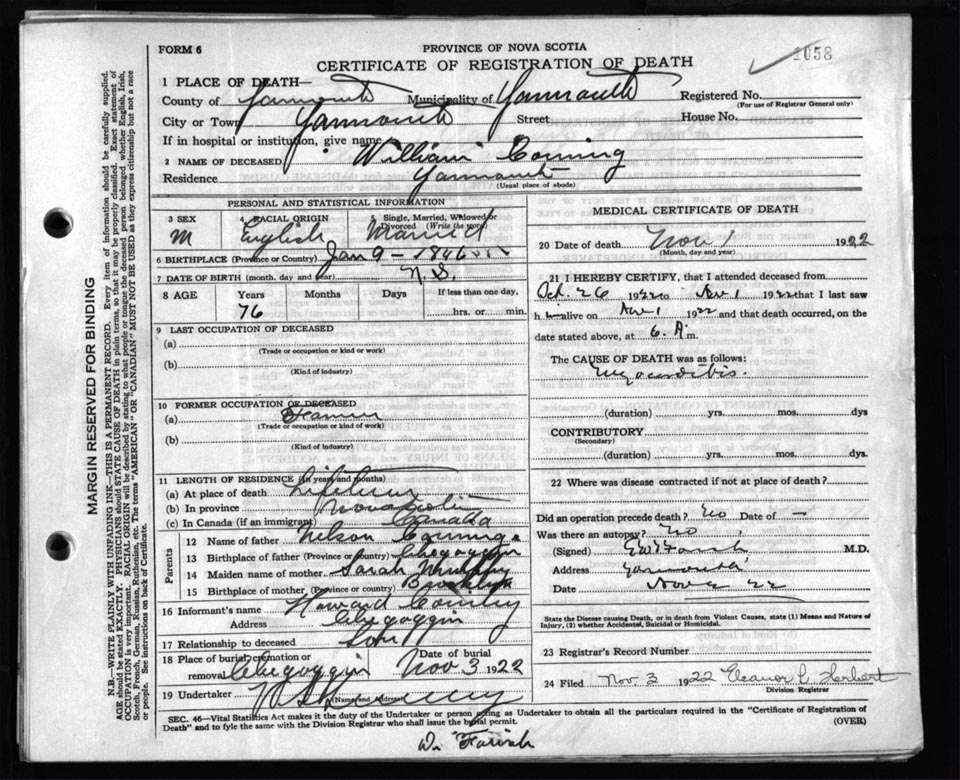 FORM 6
PROVINCE OF NOVA SCOTIA
1058
CERTIFICATE OF REGISTRATION OF DEATH
1 PLACE OF DEATH—
County of Yarmouth Municipality of Yarmouth Registered No.
(For use of Registrar General only)
City or Town Yarmouth Street House No.
If in hospital or institution, give name
2 NAME OF DECEASED William Corning
Residence Yarmouth
(Usual place of abode)
PERSONAL AND STATISTICAL INFORMATION
3 SEX 4 RACIAL ORIGIN 5 Single, Married, Widowed or Divorced (Write the word)
M English Married
6 BIRTHPLACE (Province or Country) Jan 9 - 1846
7 DATE OF BIRTH (month, day and year) N.S.
8 AGE Years Months Days If less than one day,
76 hrs. or min.
9 LAST OCCUPATION OF DECEASED
(a)
(Trade or occupation or kind or work)
(b)
(Kind of industry)
10 FORMER OCCUPATION OF DECEASED
(a) Farmer
(Trade or occupation or kind or work)
(b)
(Kind of industry)
11 LENGTH OF RESIDENCE (In years and months)
(a) At place of death Lifetime
(b) In province Nova Scotia
(c) In Canada (if an immigrant) Canada
Parents
12 Name of father Nelson Corning
13 Birthplace of father (Province or Country) Chegoggin
14 Maiden name of mother Sarah
15 Birthplace of mother (Province or Country) Brooklyn
16 Informant's name Howard Corning
Address Chegoggin
17 Relationship to deceased Son
18 Place of burial, cremation or removal Chegoggin Date of burial Nov 3 1922
19 Undertaker
(Name and Address)
MEDICAL CERTIFICATE OF DEATH
20 Date of death Nov 1 1922
(Month, day and year)
21 I HEREBY CERTIFY, that I attended deceased from
Oct. 26 1922 to Nov 1 1922 that I last saw
h m alive on Nov 1 1922 and that death occurred, on the
date stated above, at 6. A m.
The CAUSE OF DEATH was as follows:
Myocarditis.
(duration) yrs. mos. dys
CONTRIBUTORY
(Secondary)
(duration) yrs. mos. dys.
22 Where was disease contracted if not at place of death?
Did an operation precede death? No Date of —
Was there an autopsy? No
(Signed) Farish M.D.
Address Yarmouth
Date Nov 2 22
State the Disease causing Death, or in death from Violent Causes, state (1) Means and Nature of Injury, (2) whether Accidental, Suicidal or Homicidal.
23 Registrar's Record Number
24 Filed Nov. 3 1922 Eleanor L Herbert
Division Registrar
SEC. 46—Vital Statistics Act makes it the duty of the Undertaker or person acting as Undertaker to obtain all the particulars required in the "Certificate of Registration of
Death" and to fyle the same with the Division Registrar who shall issue the burial permit. (OVER)
Dr Farish
MARGIN RESERVED FOR BINDING
N.B.—WRITE PLAINLY WITH UNFADING INK—THIS IS A PERMANENT RECORD. Every item of information should be carefully supplied.
AGE should be stated EXACTLY. PHYSICIANS should STATE CAUSE OF DEATH in plain terms, so that it may be properly classified. Exact statement of
OCCUPATION is very important. RACIAL ORIGIN will be described by stating to what people or tongue the deceased person belonged whether English, Irish,
Scotch, French, German, Russian, Ruthenian, etc. The terms "AMERICAN" OR "CANADIAN" MUST NOT BE USED as they express citizenship but not a race
or people. See instructions on back of Certificate.